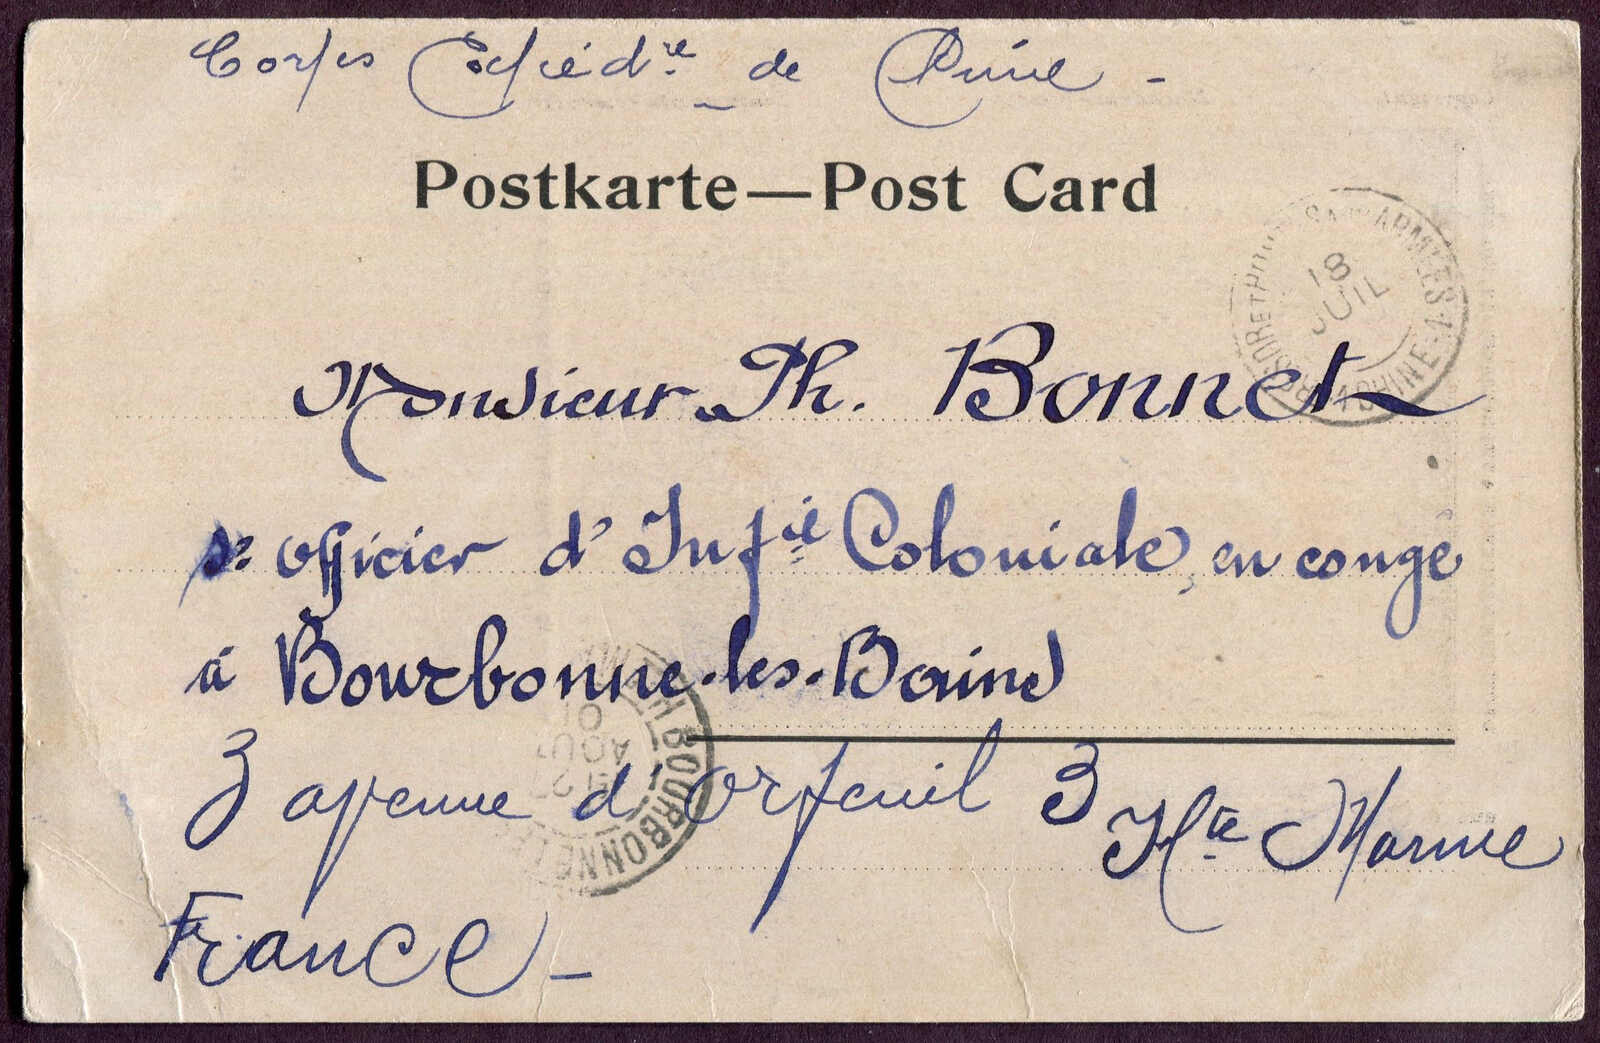 Corps Expédre de Chine -
Postkarte—Post Card
TRESOR ET POSTES AUX ARMEES
18
JUIL
CHINE 1
Monsieur Ph. Bonnet
s: officier d'Infie Coloniale, en congé
à Bourbonne-les-Bains
3 avenue d'Orfeuil 3
Hte Marne
France -
BOURBONNE LES
27
AOUT
01